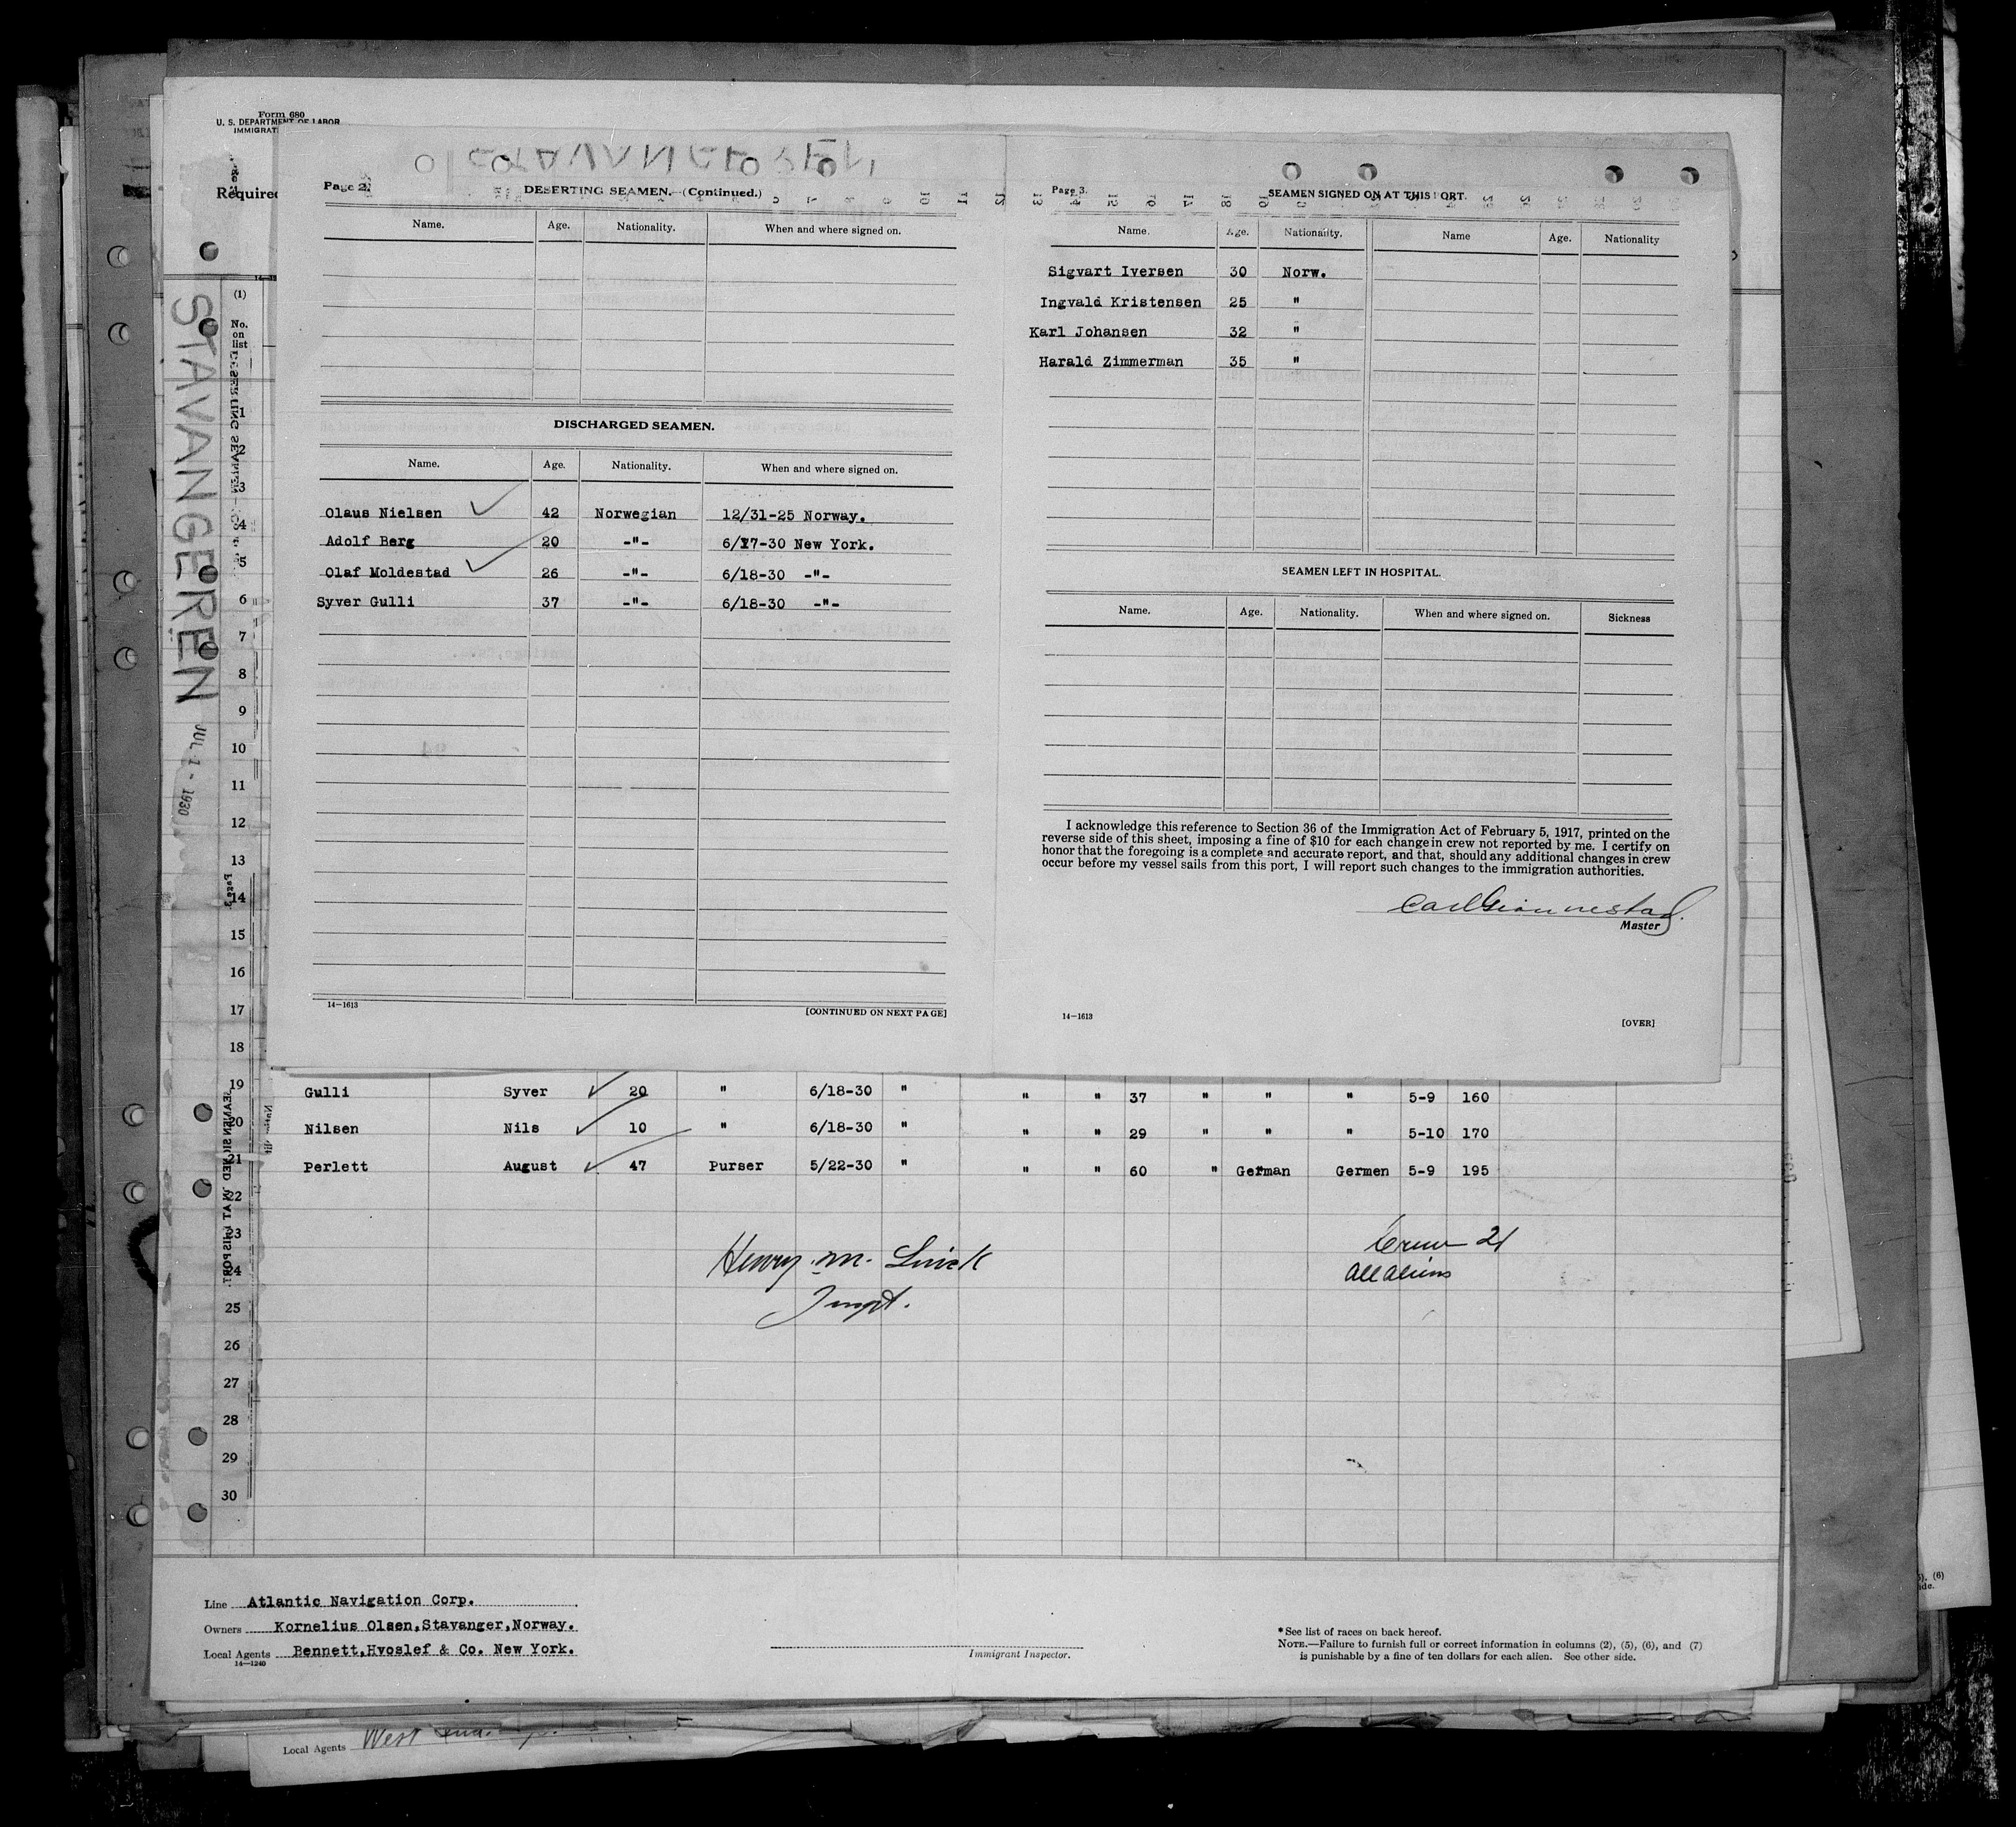 Form 680
U. S. DEPARTMENT OF LABOR
IMMIGRAT
Required
STAVANGEREN
JUL 1 - 1930
(1)
No. on list
Page 2.
DESERTING SEAMEN.—(Continued.)
Name. Age. Nationality. When and where signed on.
DISCHARGED SEAMEN.
Name. Age. Nationality. When and where signed on.
Olaus Nielsen 42 Norwegian 12/31-25 Norway.
Adolf Berg 20 -"- 6/17-30 New York.
Olaf Moldestad 26 -"- 6/18-30 -"-
Syver Gulli 37 -"- 6/18-30 -"-
14—1613
[CONTINUED ON NEXT PAGE]
Page 3.
SEAMEN SIGNED ON AT THIS PORT.
Name. Age. Nationality. Name Age. Nationality
Sigvart Iversen 30 Norw.
Ingvald Kristensen 25 "
Karl Johansen 32 "
Harald Zimmerman 35 "
SEAMEN LEFT IN HOSPITAL.
Name. Age. Nationality. When and where signed on. Sickness
I acknowledge this reference to Section 36 of the Immigration Act of February 5, 1917, printed on the
reverse side of this sheet, imposing a fine of $10 for each change in crew not reported by me. I certify on
honor that the foregoing is a complete and accurate report, and that, should any additional changes in crew
occur before my vessel sails from this port, I will report such changes to the immigration authorities.
Master
14—1613
[OVER]
1
2
3
4
5
6
7
8
9
10
11
12
13
14
15
16
17
18
19 Gulli Syver 20 " 6/18-30 " " " 37 " " " 5-9 160
20 Nilsen Nils 10 " 6/18-30 " " " 29 " " " 5-10 170
21 Perlett August 47 Purser 5/22-30 " " " 60 " German Germen 5-9 195
22
23
24
25
26
27
28
29
30
Henry M.
Crew 21
All aliens
Line Atlantic Navigation Corp.
Owners Kornelius Olsen,Stavanger,Norway.
Local Agents Bennett,Hvoslef & Co. New York.
14—1240
Immigrant Inspector.
*See list of races on back hereof.
NOTE.—Failure to furnish full or correct information in columns (2), (5), (6), and (7)
is punishable by a fine of ten dollars for each alien. See other side.
Local Agents West
(6)